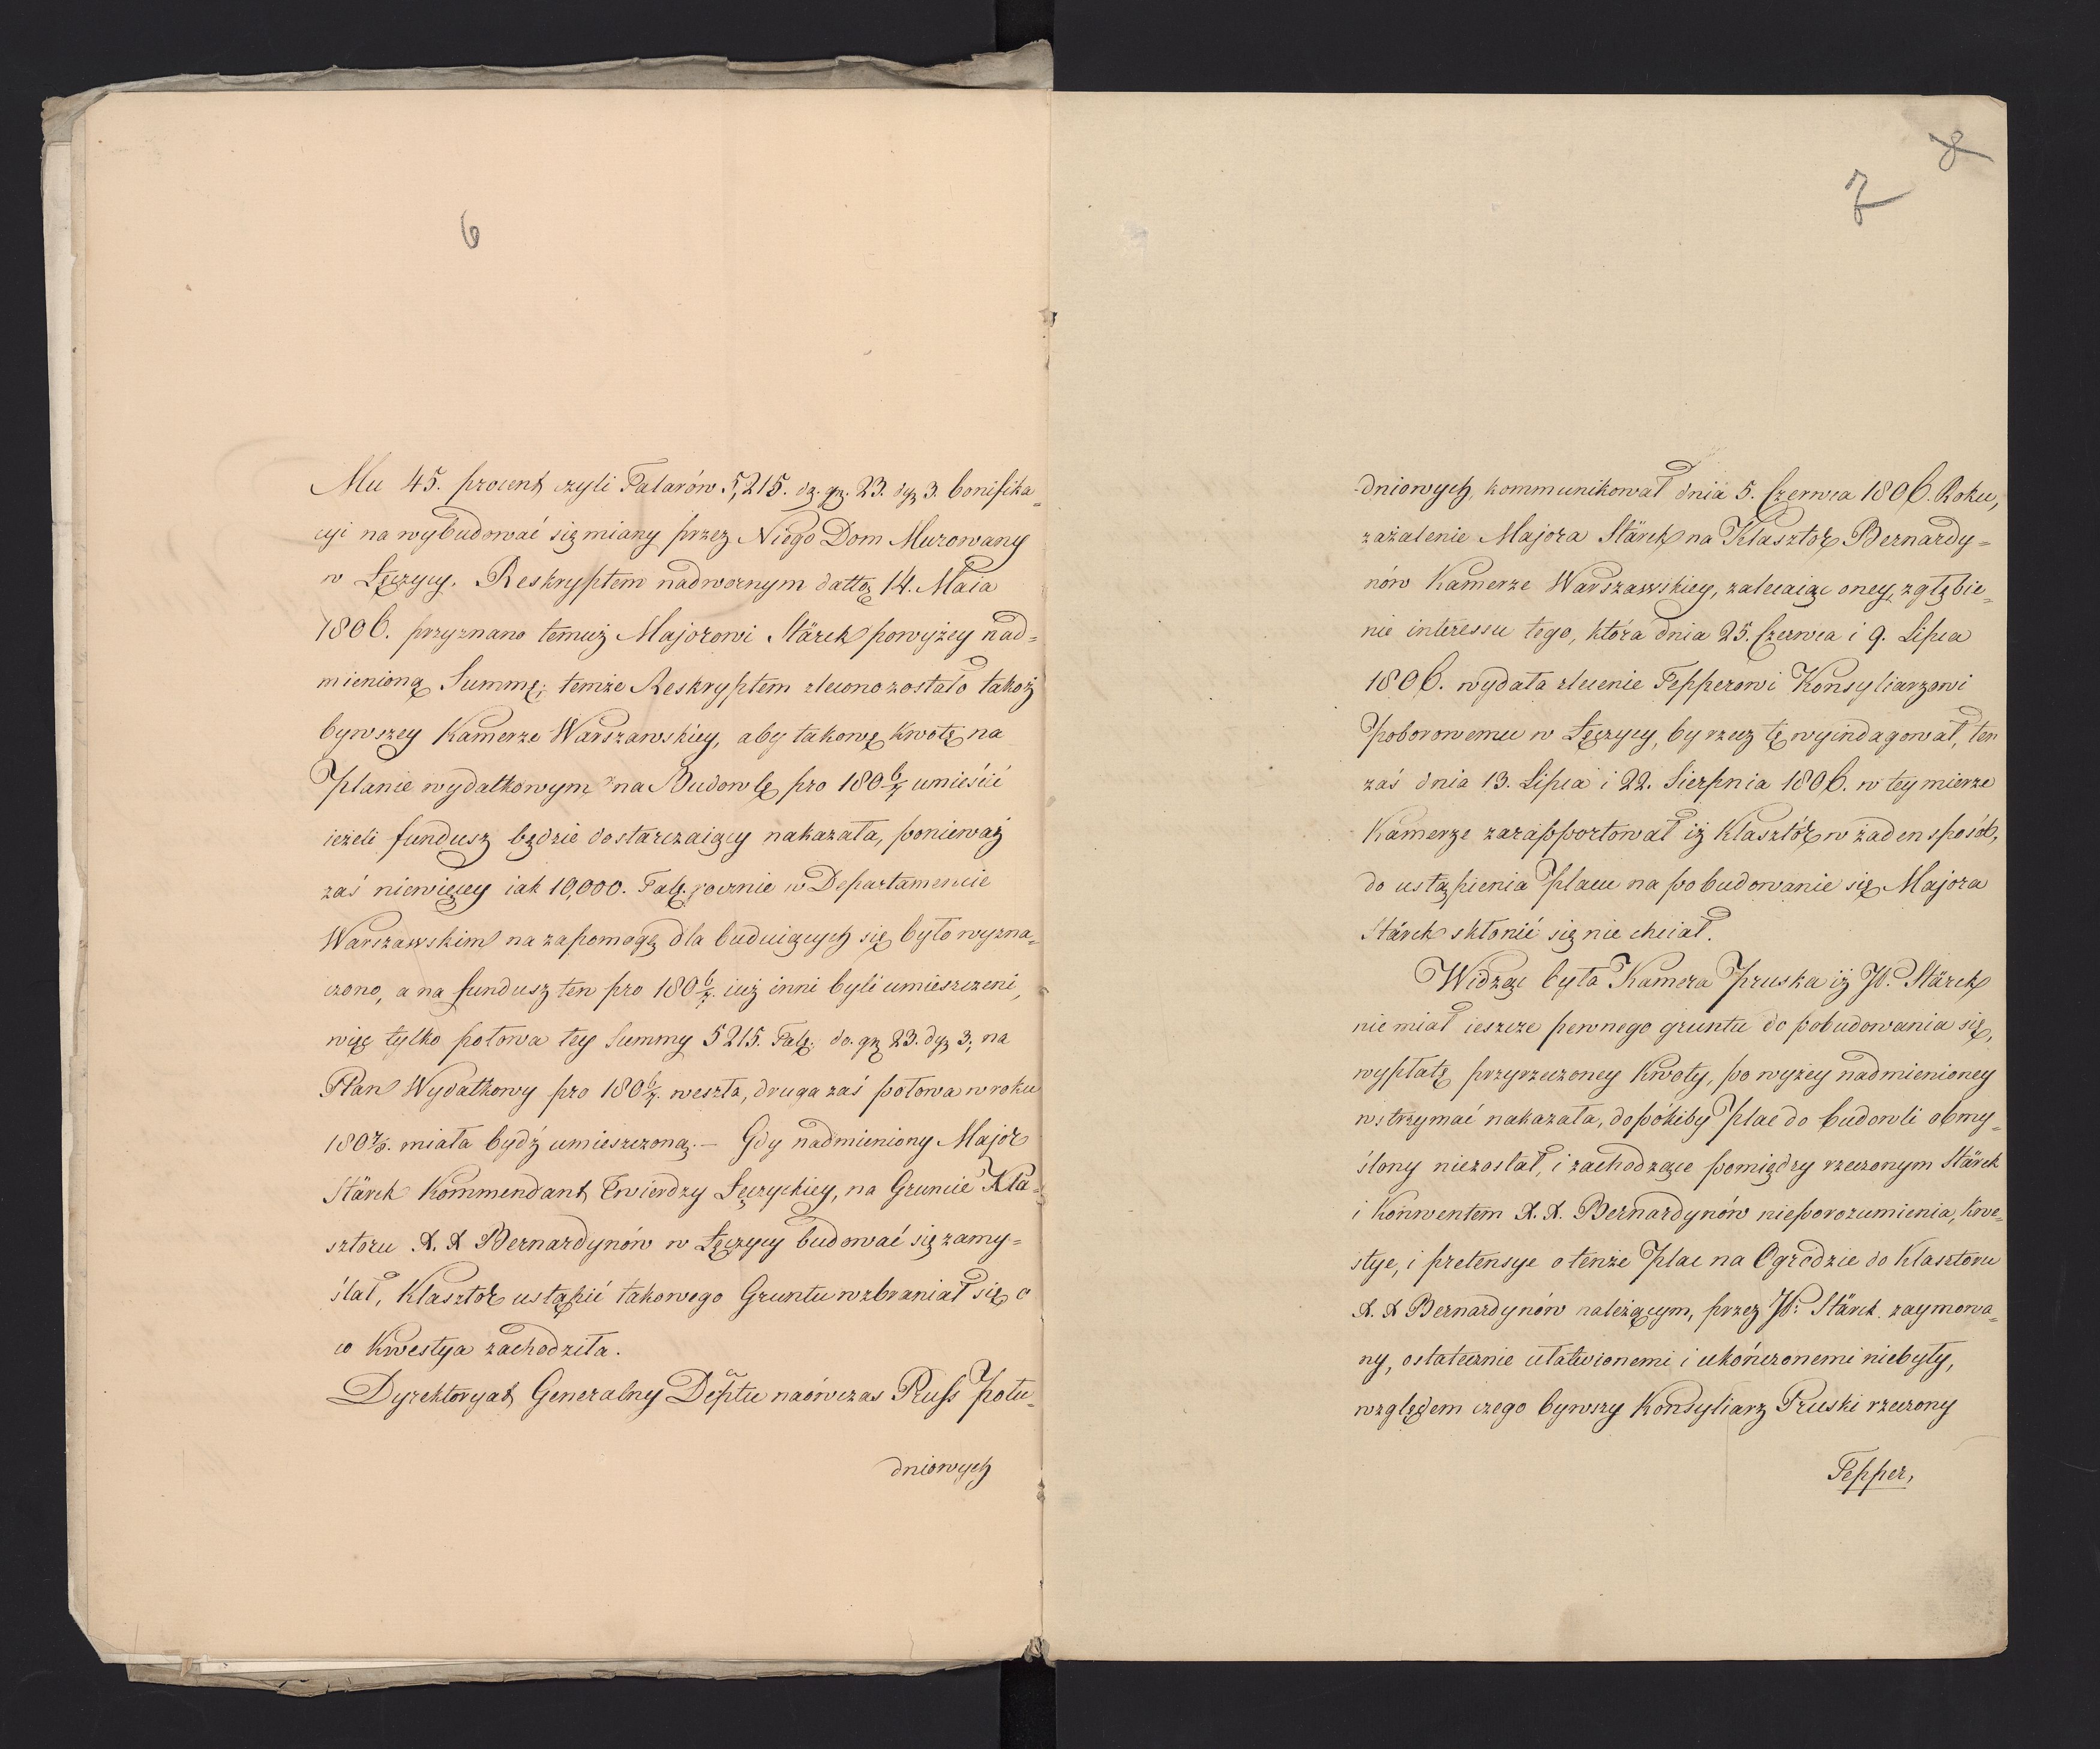 6
Mu 45. procent czyli Talarów 5,215. dg. gr. 23. dgz 3. bonifika=
cyi na wybudować się miany przez Niego Dom Murowany
w Łęczycy. Reskryptem nadwornym datto 14. Maia
1806. przyznano temuż Majorowi Stärck powyżey nad=
mienioną Summę; temże Reskryptem zlecono zostało takoż
bywszey Kamerze Warszawskiey, aby takowę Kwotę na
Planie wydatkowym na Budowlę pro 180 6/7 umieścić
ieżeli fundusz będzie dostarczaiący nakazała, ponieważ
zaś niewięcey iak 10,000. Tal. rocznie w Departamencie
Warszawskim na zapomogę dla buduiących się było wyzna=
czono, a na fundusz ten pro 180 6/7. iuż inni byli umieszczeni,
więc tylko połowa tey Summy 5215. Tal. do. gr 23. dgz 3; na
Plan Wydatkowy pro 180 6/7. weszła, druga zaś połowa w roku
180 7/8. miała bydź umieszczoną. — Gdy nadmieniony Major
Stärck Kommendant Twierdzy Łęczyckiey, na Gruncie Kla=
sztoru X. X Bernardynów w Łęczycy budować się zamy=
ślał, Klasztor ustąpić takowego Gruntu wzbraniał się o
co Kwestya zachodziła.
Dyrektoryat Generalny Deptu naówczas Pruss Połu=
dniowych
8
7
dniowych, kommunikował dnia 5. Czerwca 1806. Roku,
zażalenie Majora Stärck na Klasztor Bernardy=
nów Kamerze Warszawskiey, zalecaiąc oney, zgłębie=
nie interessu tego, która dnia 25. Czerwca i 9. Lipca
1806. wydała zlecenie Tepperowi Konsyliarzowi
Poborowemu w Łęczycy, by rzecz tę wyindagował, ten
zaś dnia 13. Lipca i 22. Sierpnia 1806. w tey mierze
Kamerze zarapportował iż Klasztor w żaden sposób,
do ustąpienia Placu na pobudowanie się Majora
Stärck skłonić się nie chciał.
Widząc była Kamera Pruska iż JP. Stärck
nie miał ieszcze pewnego gruntu do pobudowania się,
wypłatę przyrzeczoney Kwoty, powyżey nadmienioney
wstrzymać nakazała, dopókiby Plac do budowli obmy=
ślony niezostał, i zachodzące pomiędzy rzeczonym Stärck
i Konwentem X. X. Bernardynów nieporozumienia, kwe=
stye, i pretensye o tenże Plac na Ogrodzie do Klasztoru
X. X Bernardynów należącym, przez JP. Stärck. zaymowa=
ny, ostatecznie ułatwionemi i ukończonemi niebyły,
względem czego bywszy Konsyliarz Pruski rzeczony
Tepper,